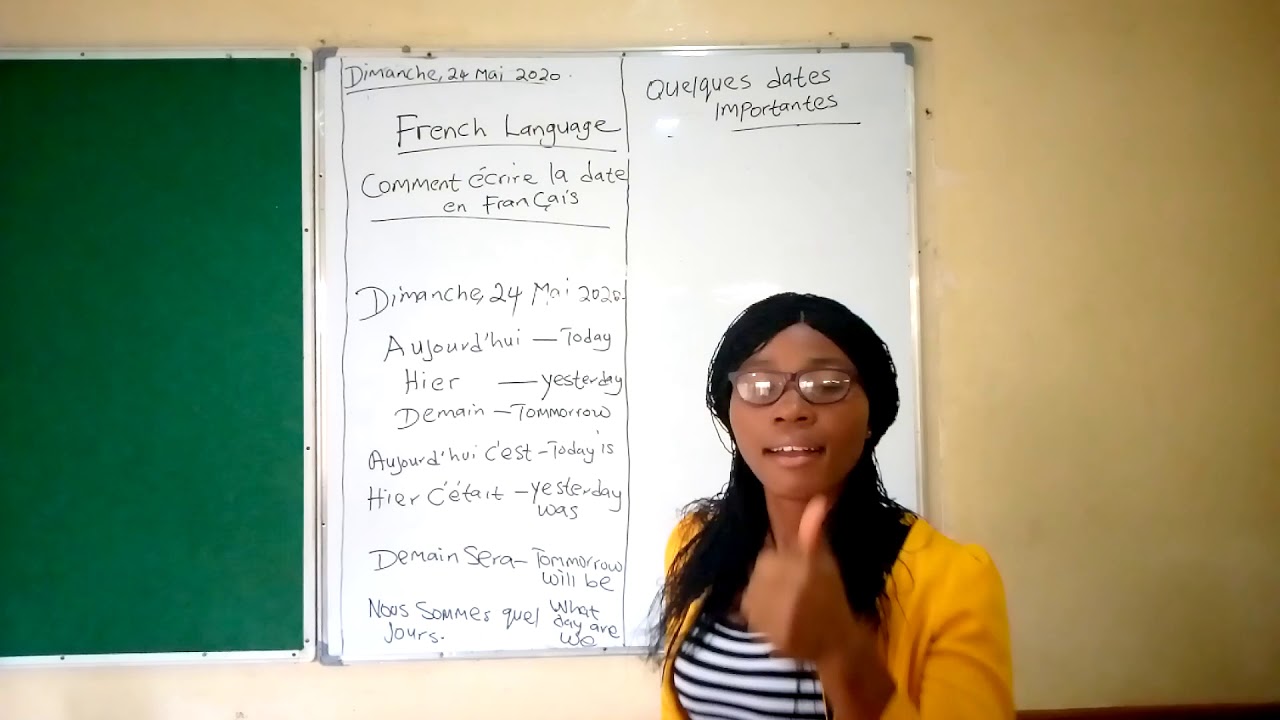 Dimanche, 24 Mai 2020.
French Language
Comment écrire la date
en Français
Dimanche, 24 Mai 2020.
Aujourd'hui — Today
Hier — yesterday
Demain — Tommorrow
Aujourd'hui c'est - Today is
Hier C'était - yesterday
was
Demain Sera - Tommorrow
will be
Nous Sommes quel What
Jours. day are
we
Quelques dates
Importantes